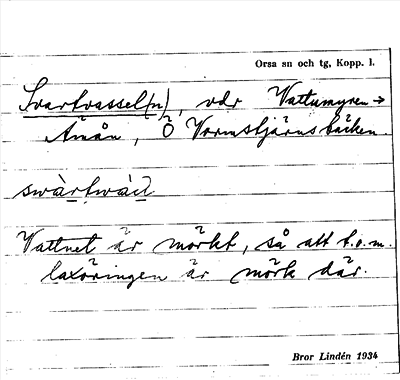 Orsa sn och tg, Kopp. l.
Svartvassel(n), vdr Vattumyren →
Ämån, Ö Vormstjärnsbäcken.
Vattnet är mörkt, så att t.o.m.
laxöringen är mörk där.
Bror Lindén 1934